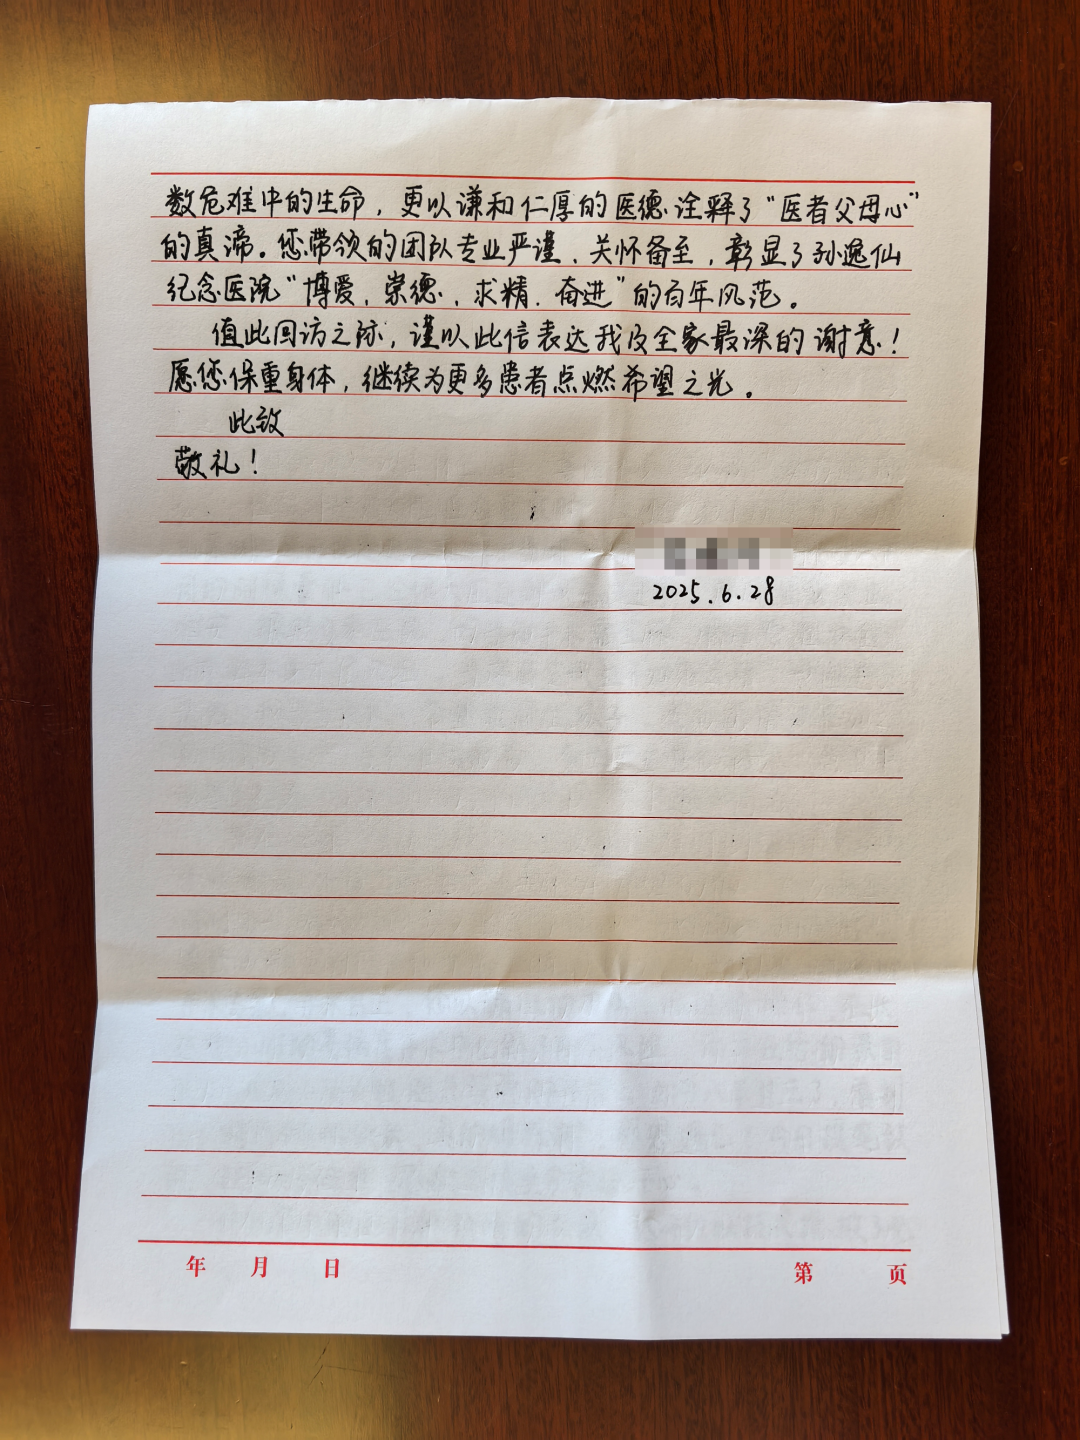 数危难中的生命，更以谦和仁厚的医德诠释了“医者父母心”
的真谛。您带领的团队专业严谨、关怀备至，彰显了孙逸仙
纪念医院“博爱、崇德、求精、奋进”的百年风范。
值此回访之际，谨以此信表达我及全家最深的谢意！
愿您保重身体，继续为更多患者点燃希望之光。
此致
敬礼！
2025.6.28
年 月 日 第 页